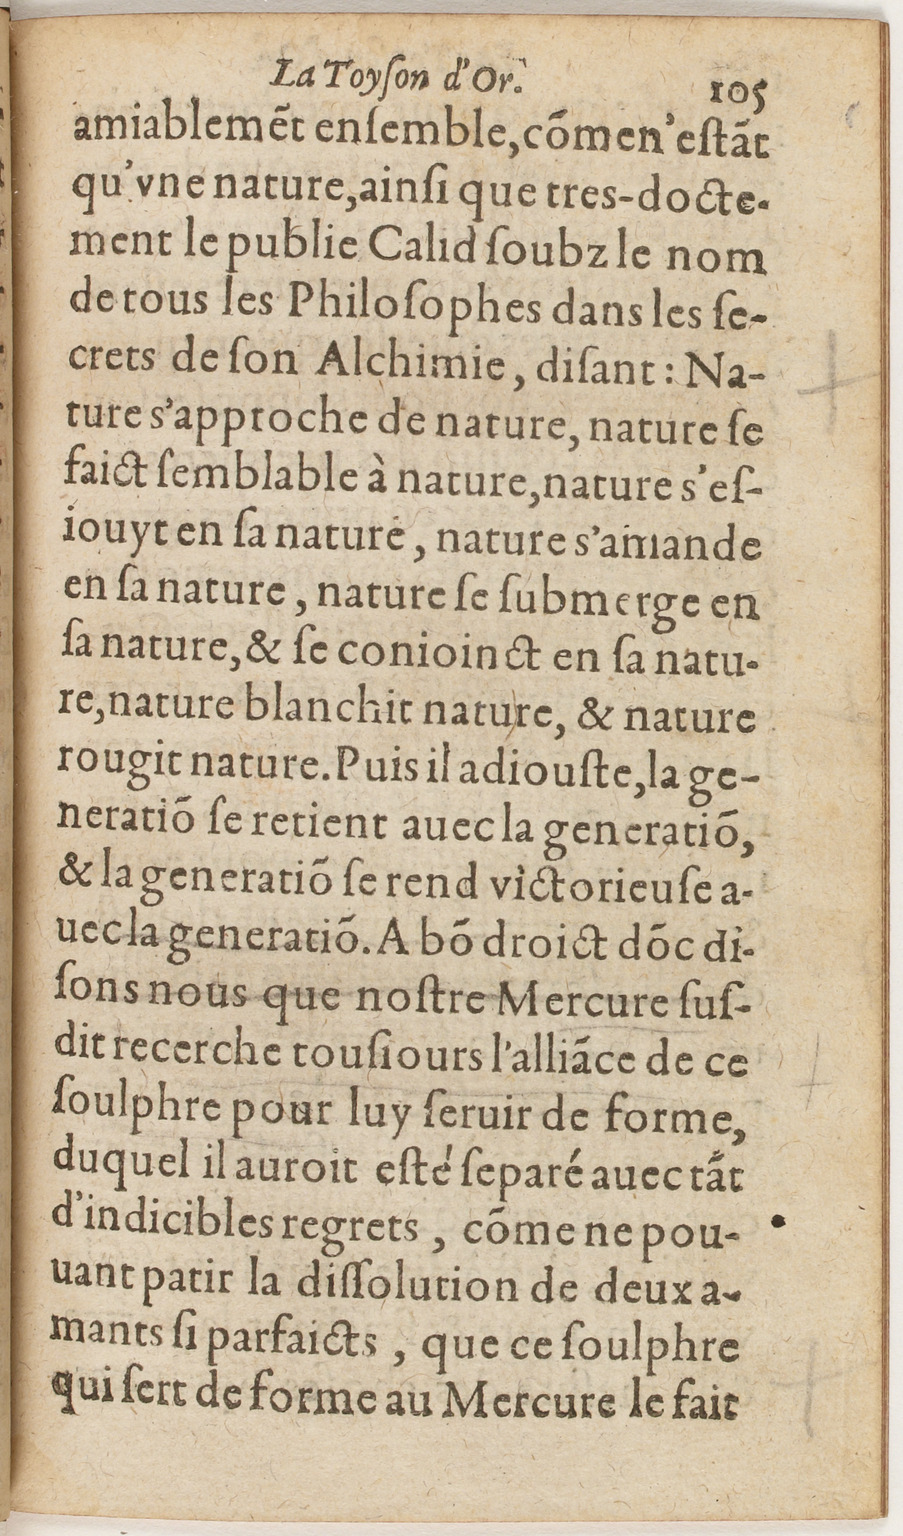 La Toyſon d'Or. 105
amiablemēt enſemble, cōme n'eſtāt
qu'vne nature, ainſi que tres-docte-
ment le publie Calid ſoubz le nom
de tous les Philoſophes dans les ſe-
crets de ſon Alchimie, diſant : Na-
ture s'approche de nature, nature ſe
faict ſemblable à nature, nature s'eſ-
iouyt en ſa nature, nature s'amande
en ſa nature, nature ſe ſubmerge en
ſa nature, & ſe conioinct en ſa natu-
re, nature blanchit nature, & nature
rougit nature. Puis il adiouſte, la ge-
neratiō ſe retient auec la generatiō,
& la generatiō ſe rend victorieuſe a-
uec la generatiō. A bō droict dōc di-
ſons nous que noſtre Mercure ſuſ-
dit recerche touſiours l'alliāce de ce
ſoulphre pour luy ſeruir de forme,
duquel il auroit eſté ſeparé auec tāt
d'indicibles regrets, cōme ne pou-
uant patir la diſſolution de deux a-
mants ſi parfaicts, que ce ſoulphre
qui ſert de forme au Mercure le fait